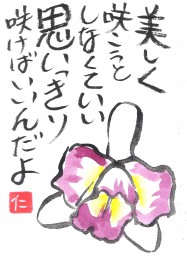 美しく
咲こうと
しなくていい
思いっきり
咲けばいいんだよ
仁